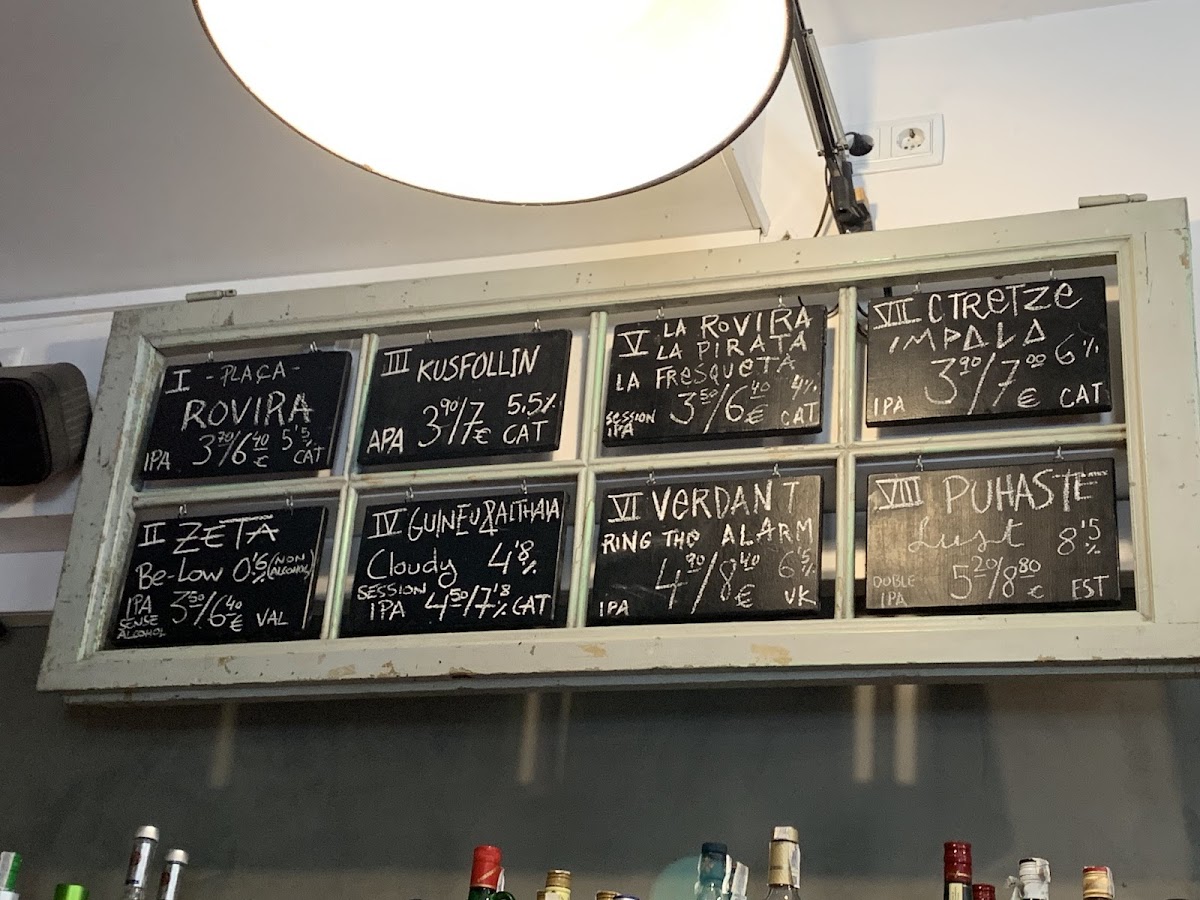 I -PLAÇA-
ROVIRA
IPA 3'70/6'40 € 5'5% CAT
II ZETA
Be-Low 0'5% (NON ALCOHOL)
IPA
SENSE
ALCOHOL
3'50/6'40 € VAL
III KUSFOLLIN
3'90/7 € 5.5%
APA CAT
IV GUINEU & ALTHAIA
Cloudy 4'8%
SESSION
IPA 4'50/7'8 CAT
V LA ROVIRA
LA PIRATA
LA FRESQUETA
SESSION
IPA
3'50/6'40 € 4% CAT
VI VERDANT
RING THO ALARM
4'90/8'40 € 6'5%
IPA UK
VII CTRETZE
IMPALA
3'90/7'00 € 6%
IPA CAT
VIII PUHASTE
Lust 8'5%
DOBLE
IPA
5'20/8'80 € EST